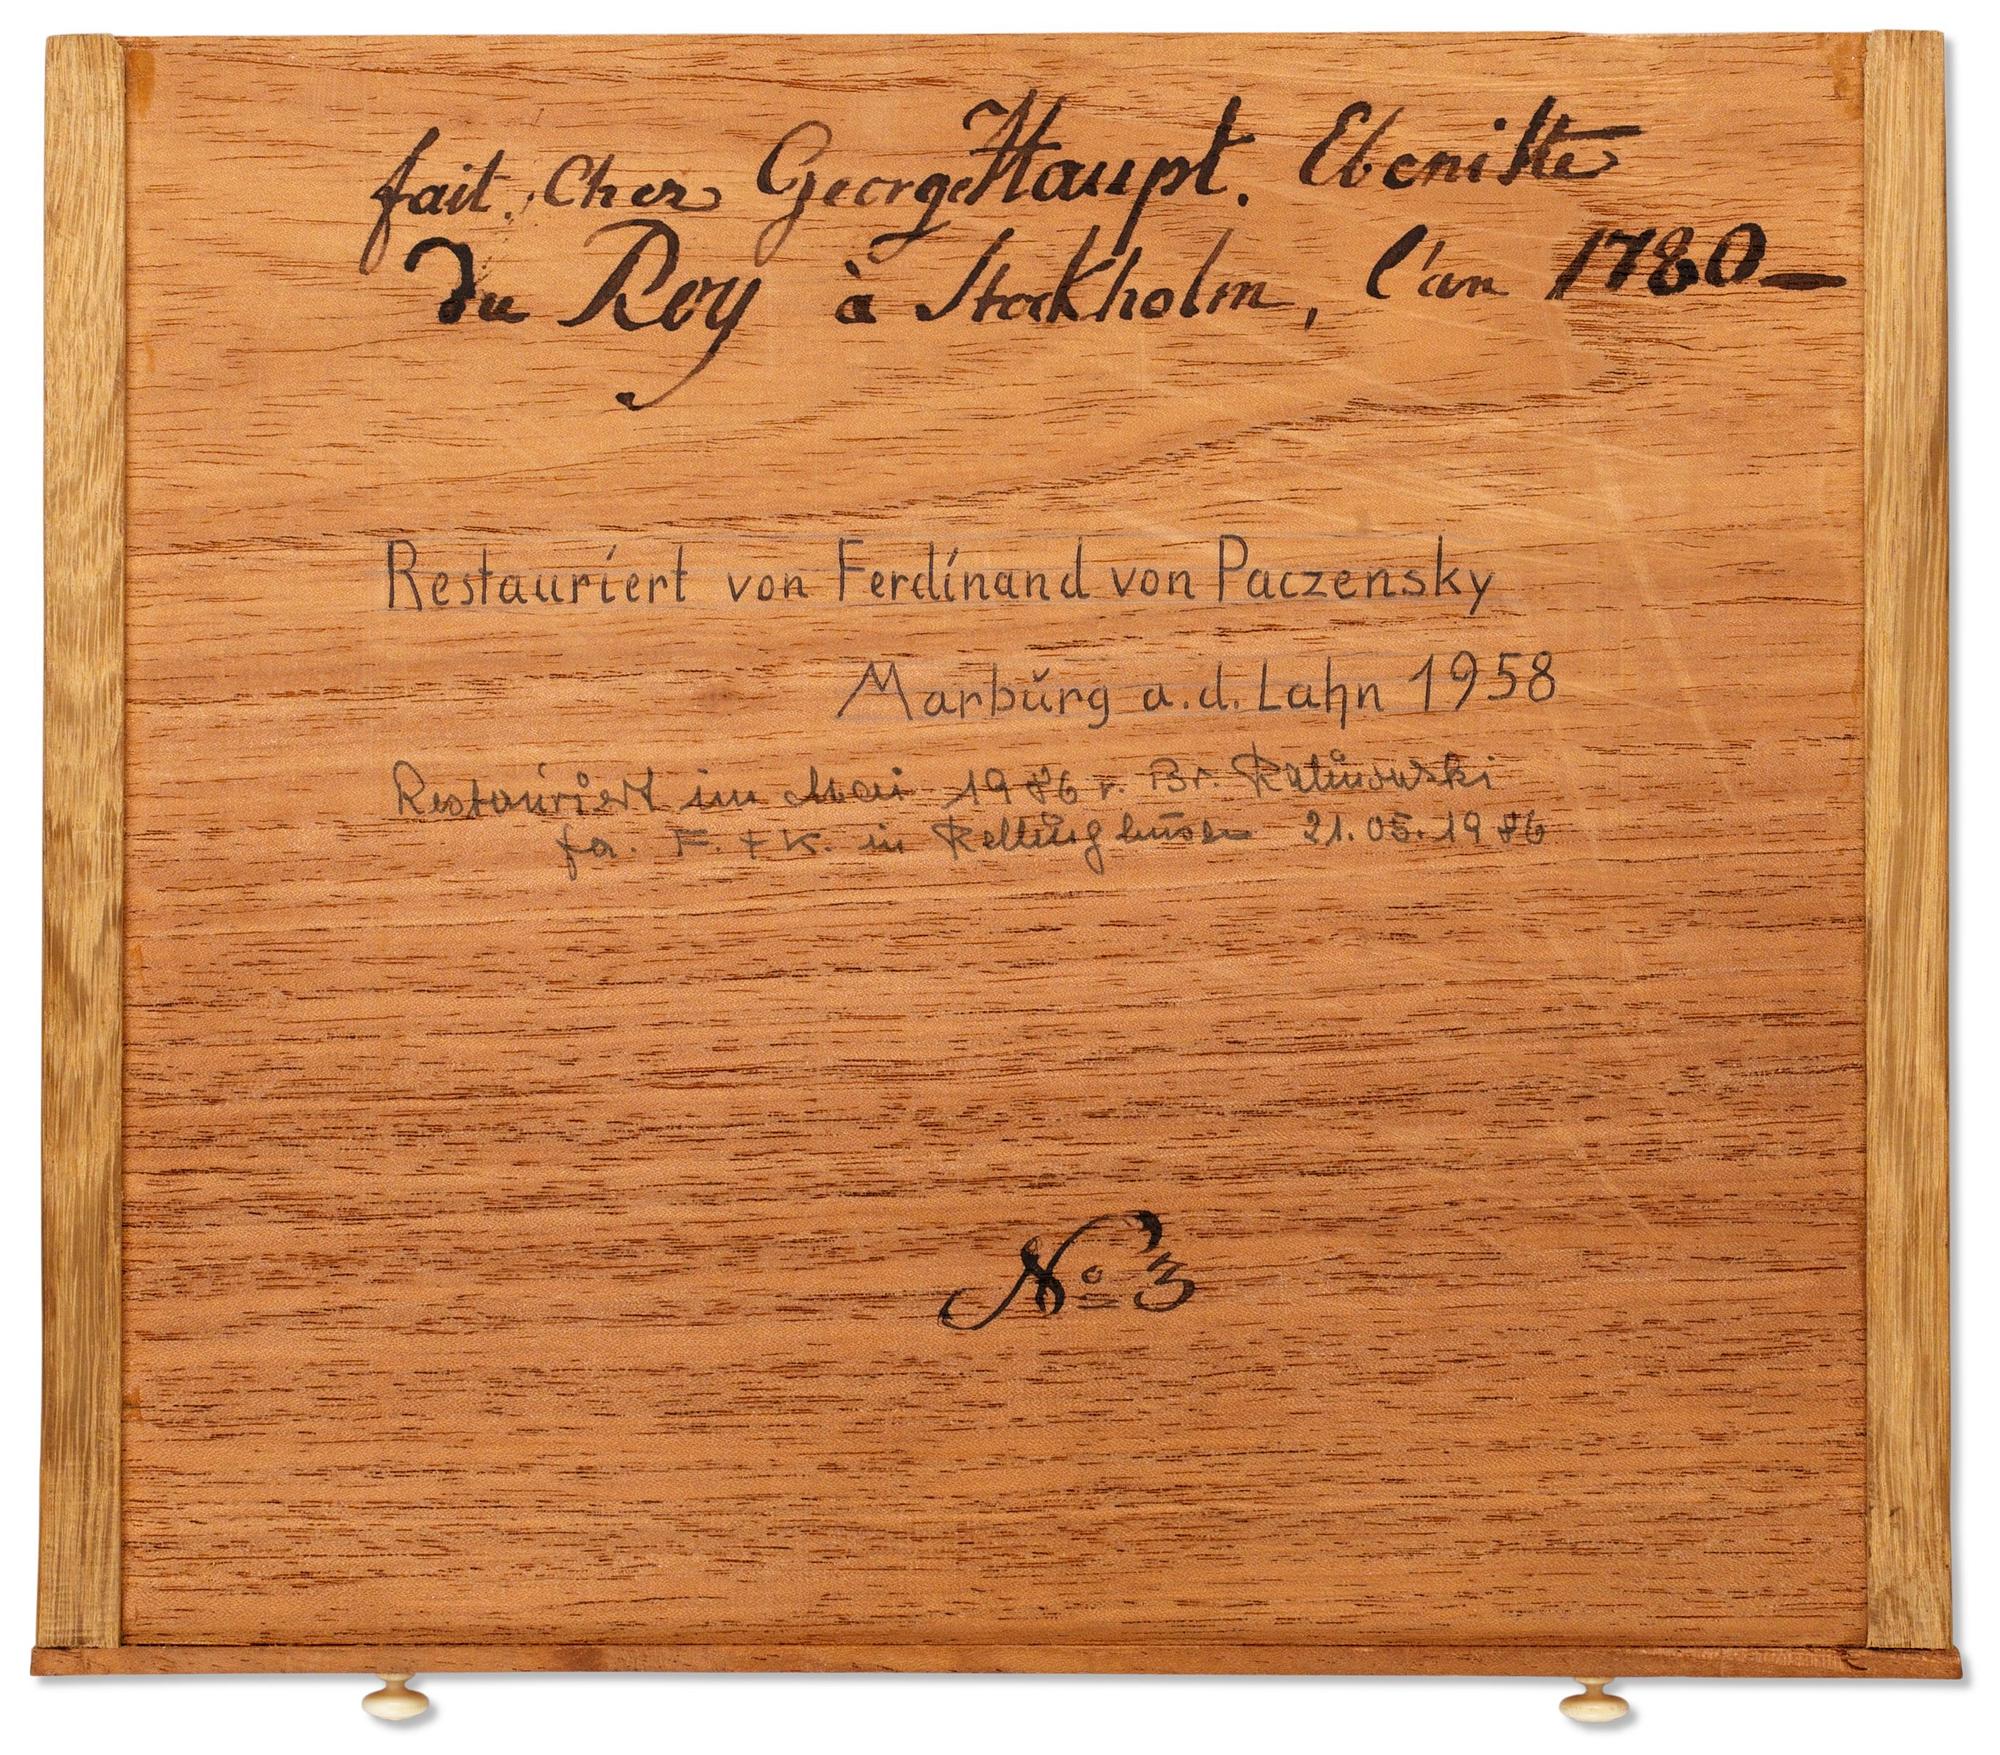 fait, Chez George Haupt. Ebeniste
du Roy à Stockholm, l'an 1780
Restauriert von Ferdinand von Paczensky
Marburg a.d. Lahn 1958
Restauriert im Mai 1986 v. Br. Kalinowski
fa. F. + K. in Rellinghausen 21.05.1986
No 3